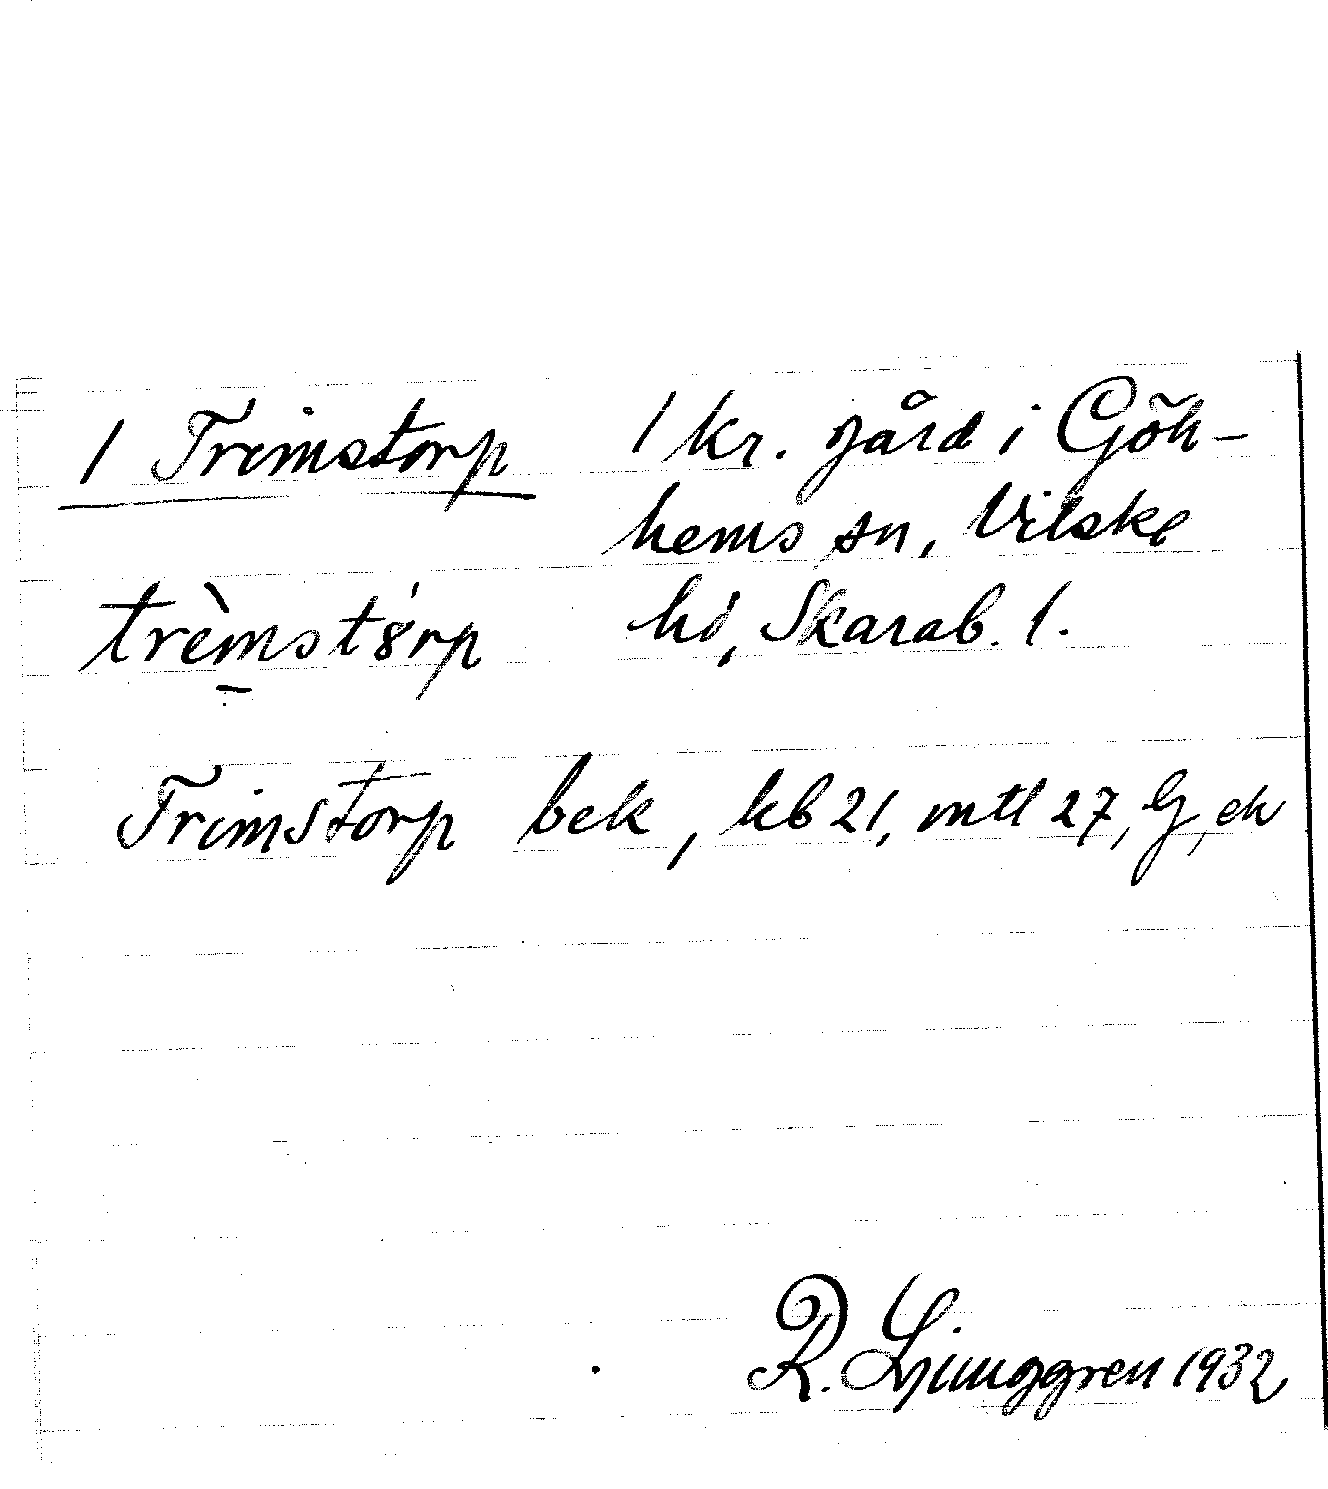 1 Trimstorp 1 kr. gård i Göh-
hems sn, Vilske
trèmstórp hd, Skarab. l.
Trimstorp bek, kb 21, mtl 27, G, ek
R. Ljunggren 1932